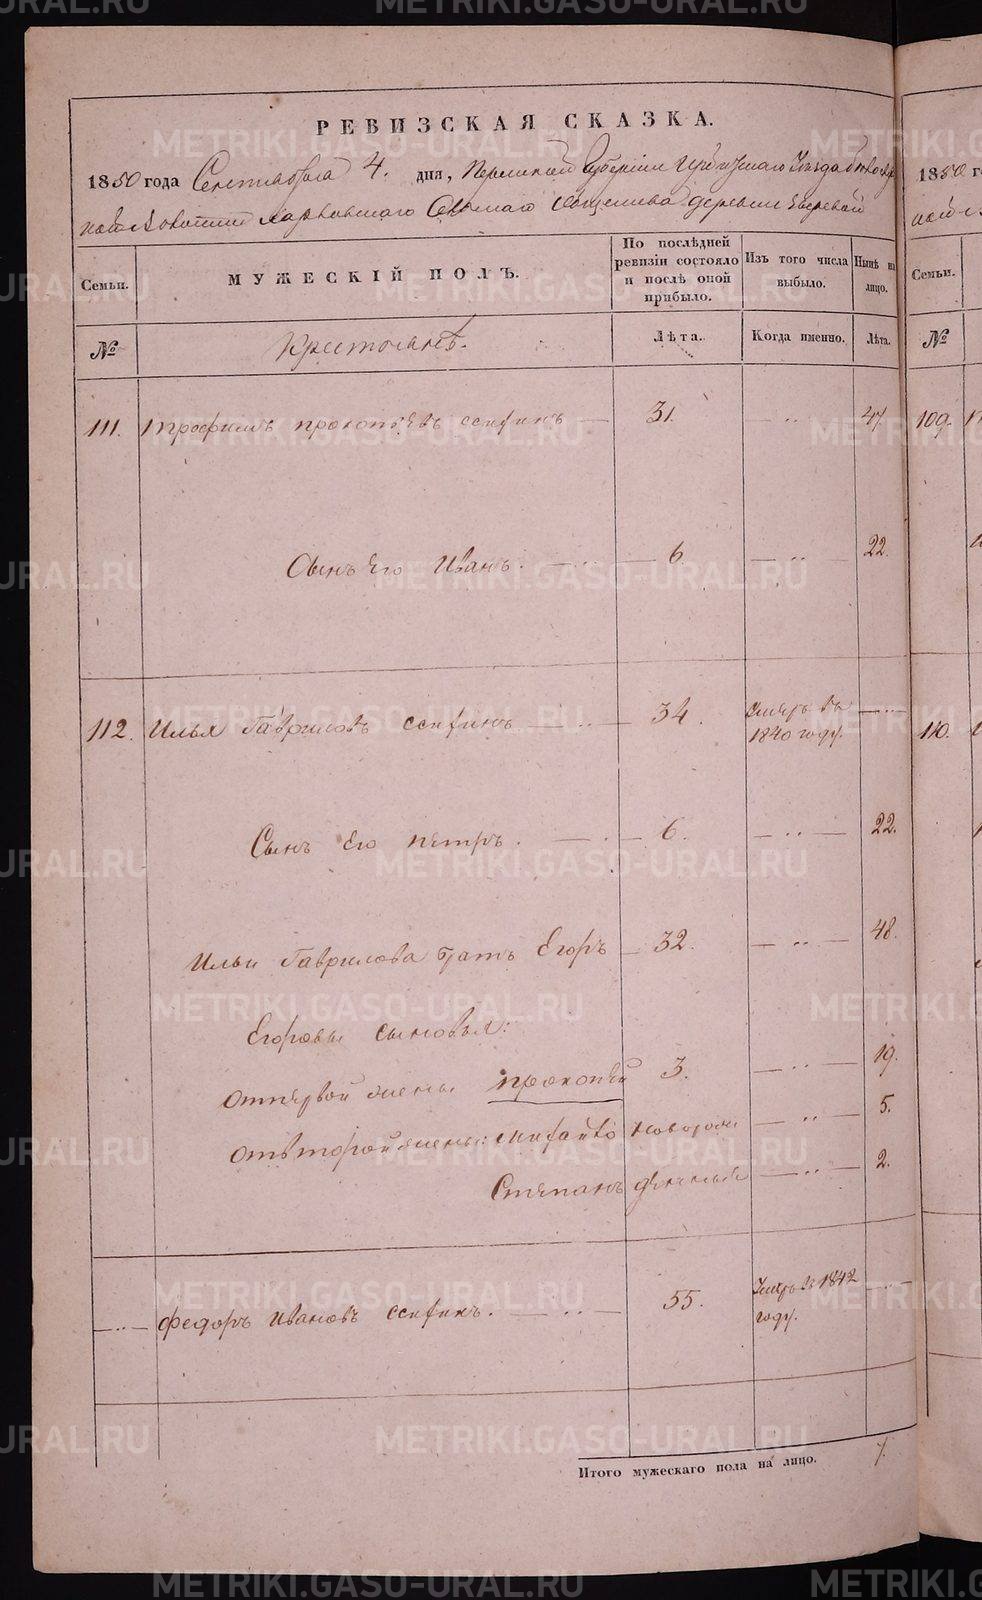 РЕВИЗСКАЯ СКАЗКА.
1850 года Сентября 4. дня, Пермской Губернии Ирбитского Уезда
волости Харловского Сельскаго общества деревни Зверевой
Семьи.
МУЖЕСКІЙ ПОЛЪ.
По послѣдней ревизіи состояло и послѣ оной прибыло.
Изъ того числа выбыло.
Нынѣ на лицо.
№
Крестьянъ.
Лѣта.
Когда именно.
Лѣта.
111. Трофимъ Прокопьевъ 31. 47
Сынъ Его Иванъ. 6. 22.
112. Илья Гавриловъ 34. умеръ въ 1840 году.
Сынъ Его Петръ. 6. 22.
Ильи Гаврилова братъ Егоръ 32. 48.
Егоровы сыновья:
от первой жены Прокопей 3. 19.
отъ второй жены: Михайло новорож 5.
Степанъ денный 2.
Федоръ Ивановъ 55. Умеръ в 1842 году.
Итого мужескаго пола на лицо. 7.
1850 г
Семьи.
№
109.
110.
METRIKI.GASO-URAL.RU